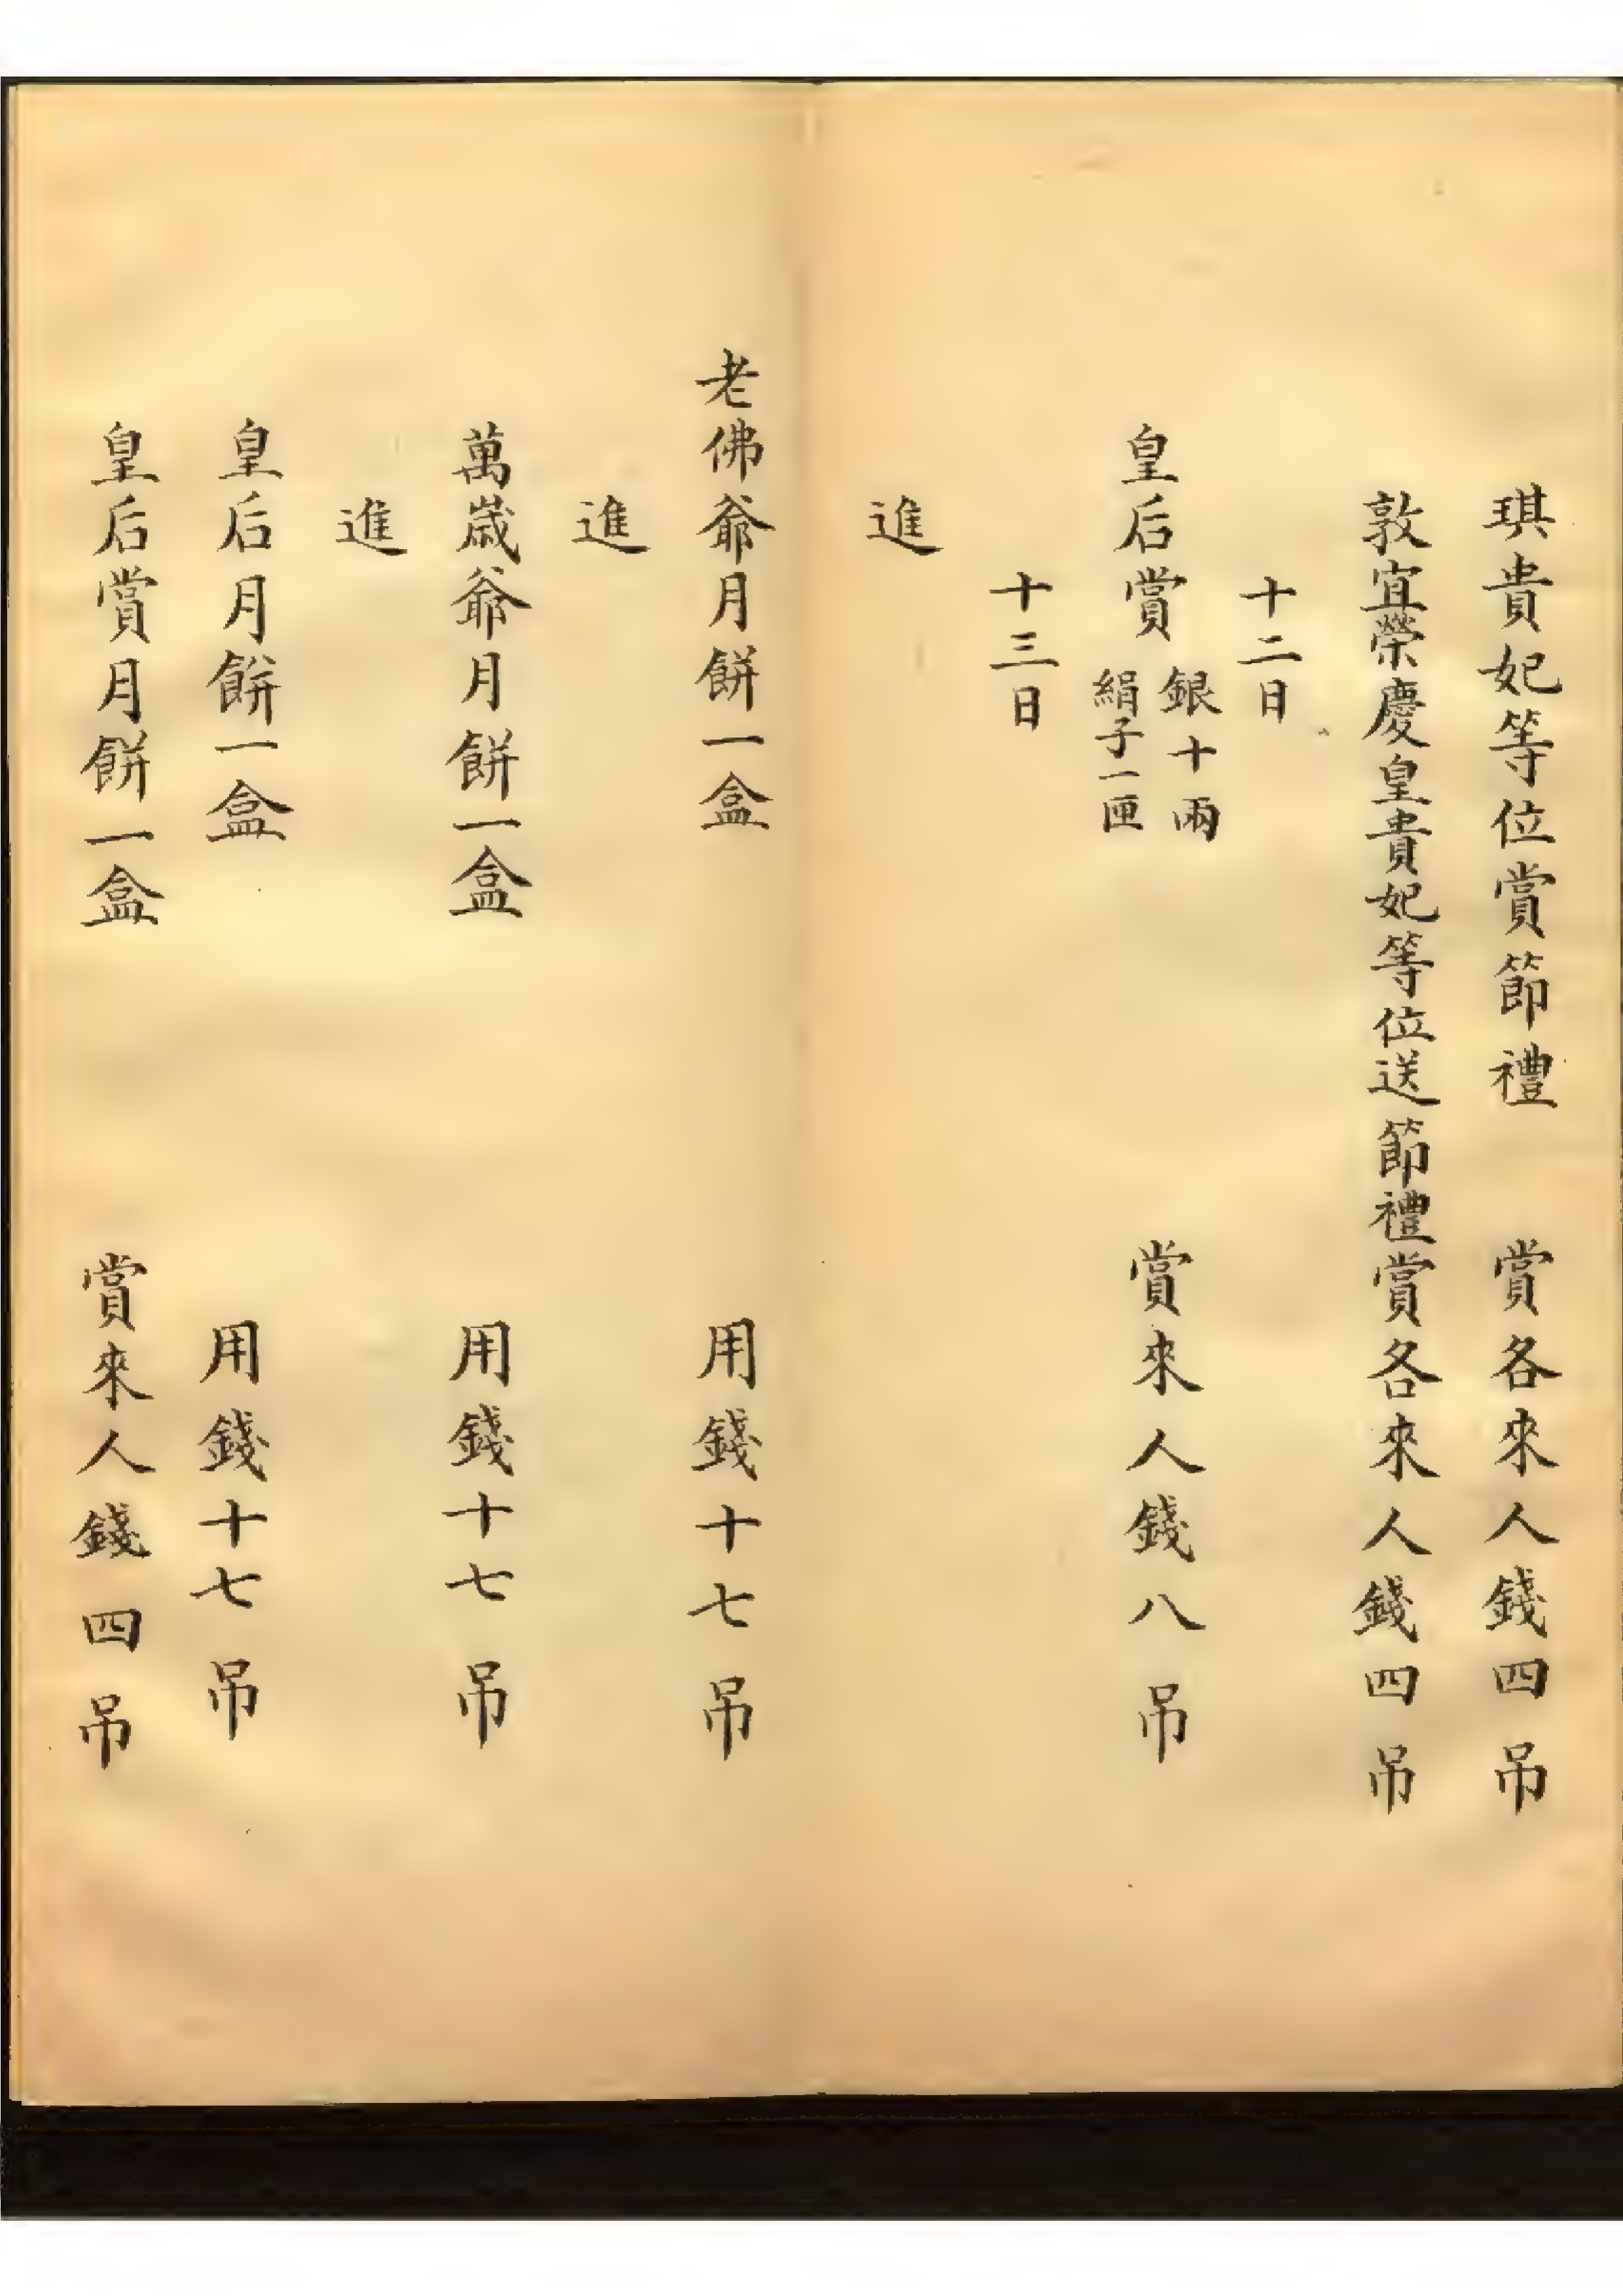 琪貴妃等位賞節禮 賞各來人錢四吊
敦宜榮慶皇貴妃等位送節禮賞各來人錢四吊
十二日
皇后賞 銀十兩 絹子一匣 賞來人錢八吊
十三日
進
老佛爺月餅一盒 用錢十七吊
進
萬歲爺月餅一盒 用錢十七吊
進
皇后月餅一盒 用錢十七吊
皇后賞月餅一盒 賞來人錢四吊